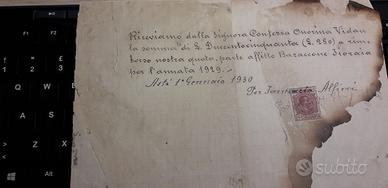 Riceviamo dalla Signora Contessa Onorina Vidau
la somma di L. Duecentocinquanta (L. 250) a rim=
borso nostra quota, parte affitto Baraccone Fioraia
per l'annata 1929.-
Asti 1° Gennaio 1930
Per Farmacia Alfieri
subito
Alt